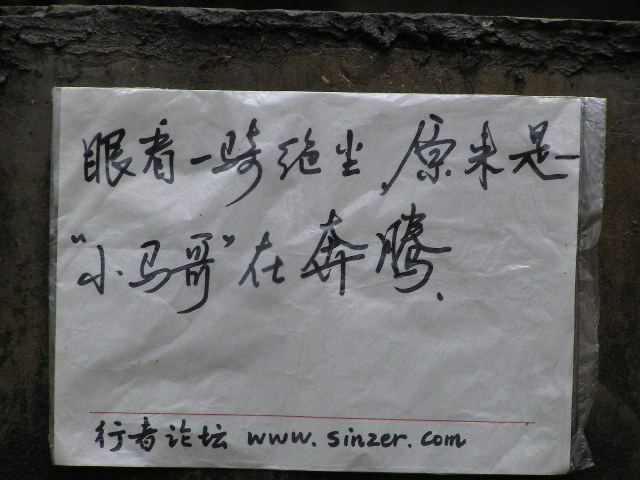 眼看一骑绝尘,原来是
“小马哥”在奔腾.
行者论坛 www.sinzer.com